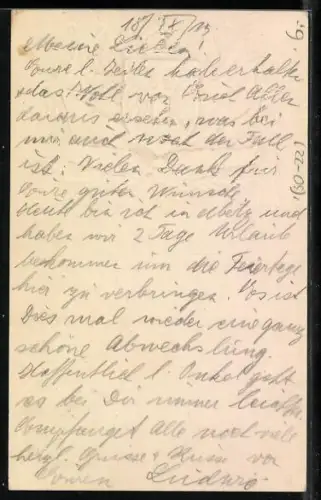 18/IX/15
6.
Meine Lieben!
Eure l. Zeilen habe erhalten
das Wohl von Euch Allen
daraus ersehen, was bei
mir auch noch der Fall
ist. Vielen Dank für
Eure guten Wünsche
Heute bin ich in und
haben wir 2 Tage Urlaub
bekommen um die Feiertage
hier zu verbringen. Es ist
Dies mal wieder eine ganz
schöne Abwechslung.
Hoffentlich l. Onkel geht
es bei Dir immer
Empfanget Alle noch viele
herzl. Grüsse & Küsse von
Eurem Ludwig
(50-22)